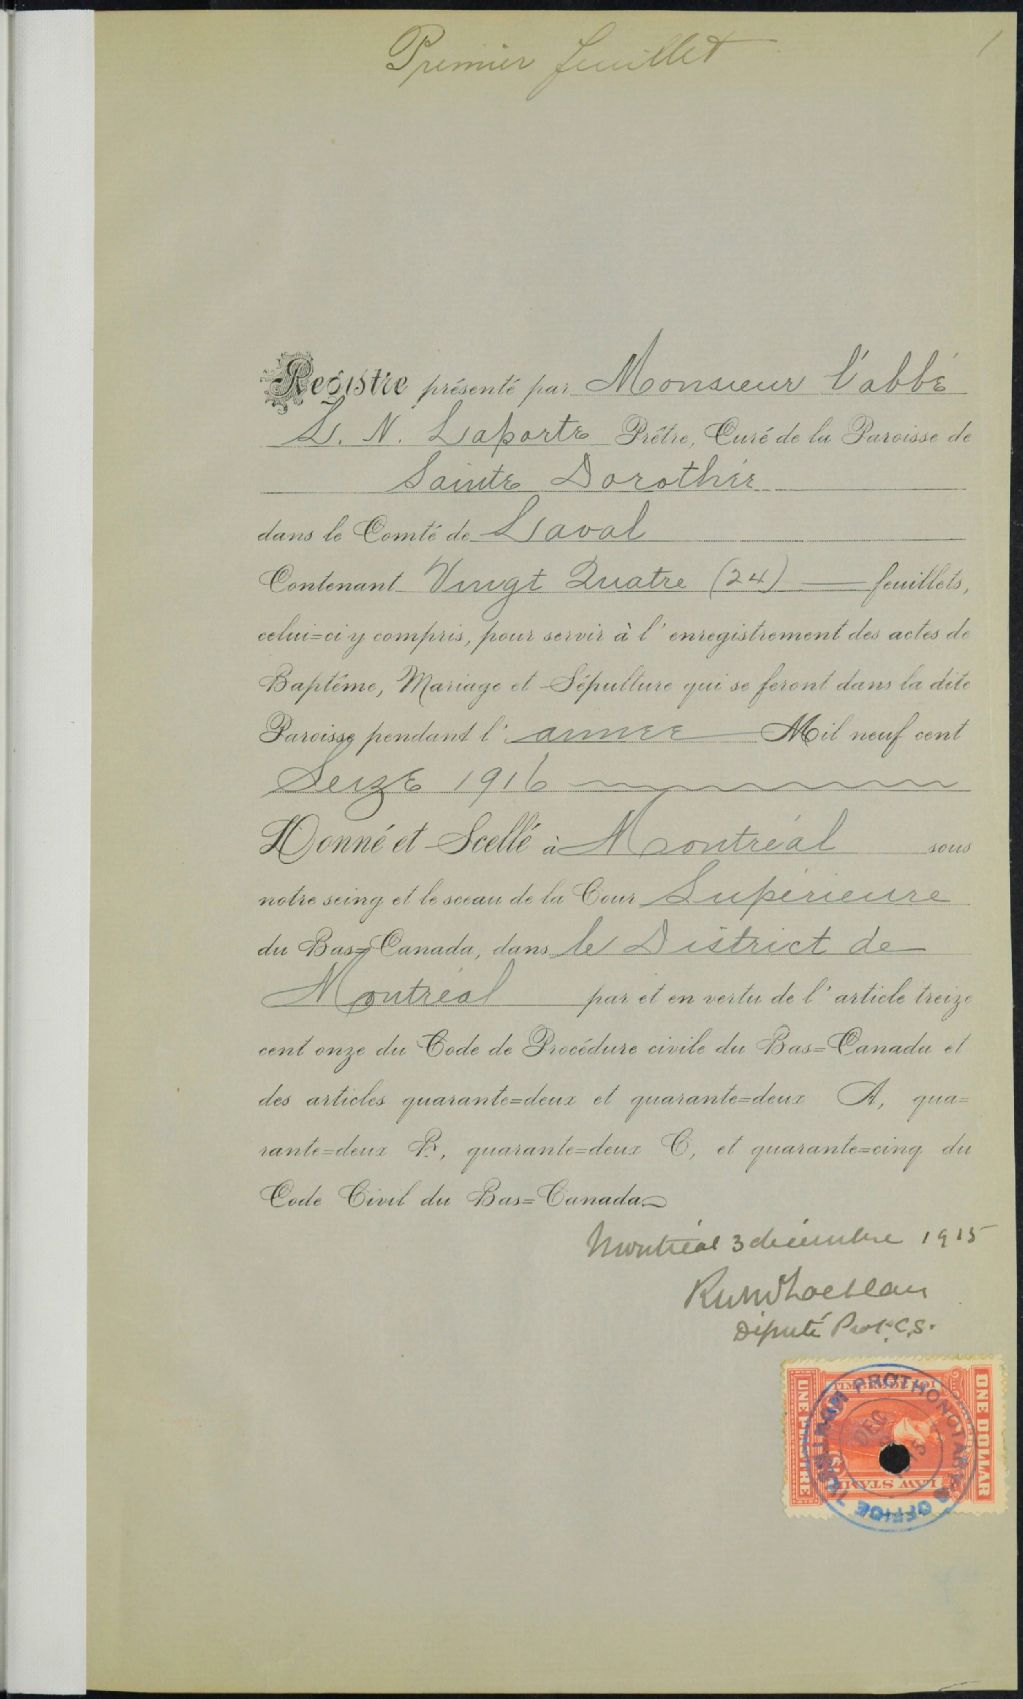 Premier feuillet
1
Registre présenté par Monsieur l'abbé
L. N. Laporte Prêtre, Curé de la Paroisse de
Sainte Dorothée
dans le Comté de Laval
Contenant Vingt Quatre (24) feuillets,
celui=ci y compris, pour servir à l'enregistrement des actes de
Baptême, Mariage et Sépulture qui se feront dans la dite
Paroisse pendant l'année Mil neuf cent
Seize 1916
Donné et Scellé à Montréal sous
notre seing et le sceau de la Cour Supérieure
du Bas=Canada, dans le District de
Montréal par et en vertu de l'article treize
cent onze du Code de Procédure civile du Bas=Canada et
des articles quarante=deux et quarante=deux A, qua=
rante=deux B, quarante=deux C, et quarante=cinq du
Code Civil du Bas=Canada
Montréal 3 décembre 1915
Député Prot. C.S.
PROTHONOTARY'S OFFICE MONTREAL
DEC 15
ONE DOLLAR
LAW STAMP
UNE PIASTRE